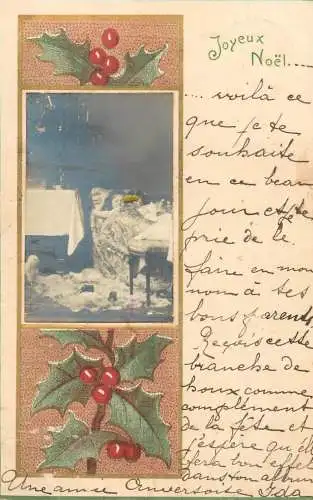 Joyeux
Noël....
.... voilà ce
que je te
souhaite
en ce beau
jour et je te
prie de le
faire en mon
nom à tes
bons parents
Reçois cette
branche de
houx comme
complément
de la fête et
j'espère qu'elle
fera bon effet
dans ton album
Une amie